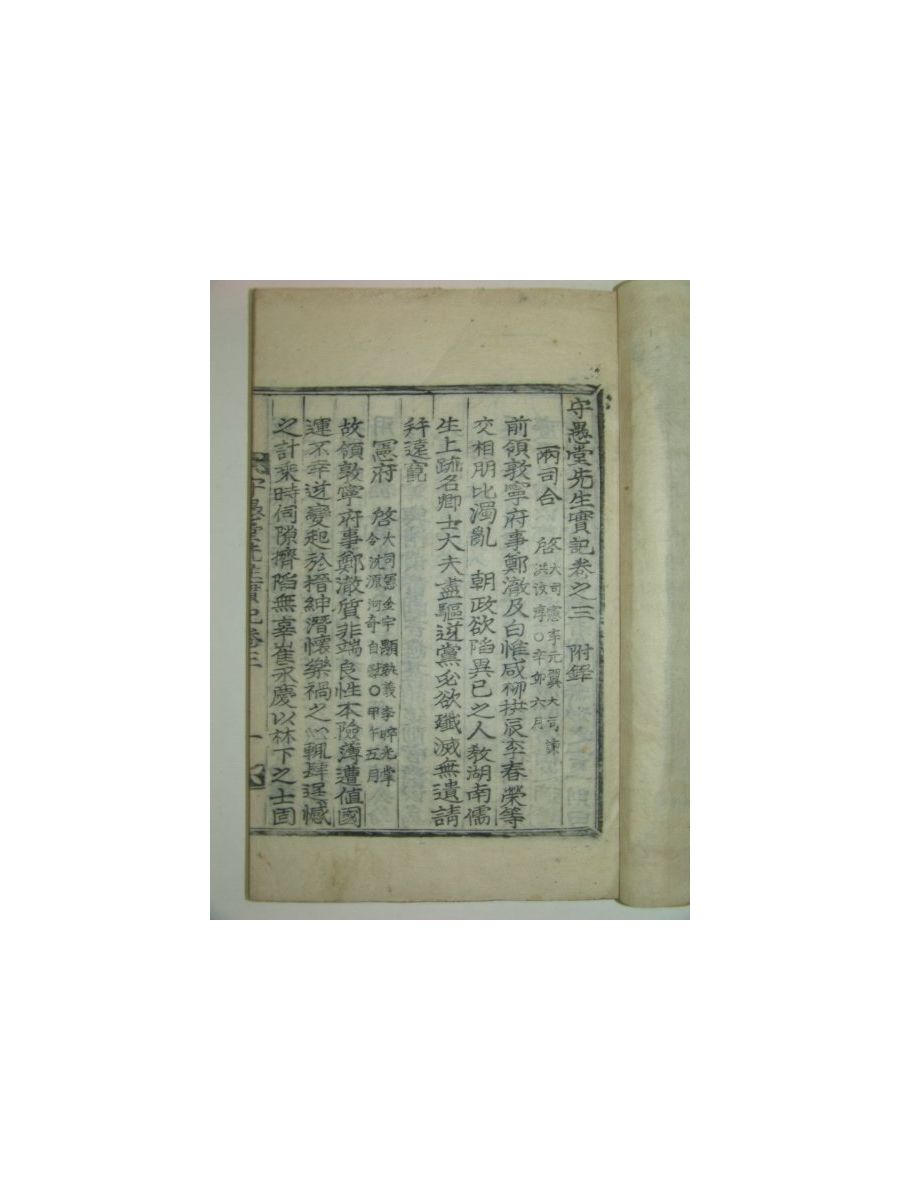 守愚堂先生實記卷之三 附錄
兩司合 啓 大司憲李元翼大司諫
洪汝諄○辛卯六月
前領敦寧府事鄭澈及白惟咸柳拱辰李春榮等
交相朋比濁亂 朝政欲陷異己之人教湖南儒
生上疏名卿士大夫盡驅逆黨必欲殲滅無遺請
幷遠竄
憲府 啓 大司憲金宇顒執義李睟光掌
令沈源河奇自獻○甲午五月
故領敦寧府事鄭澈質非端良性本險薄遭值國
運不幸逆變起於搢紳潛懷樂禍之心輒肆逞憾
之計乘時伺隙擠陷無辜崔永慶以林下之士固
守愚堂先生實記卷三 一